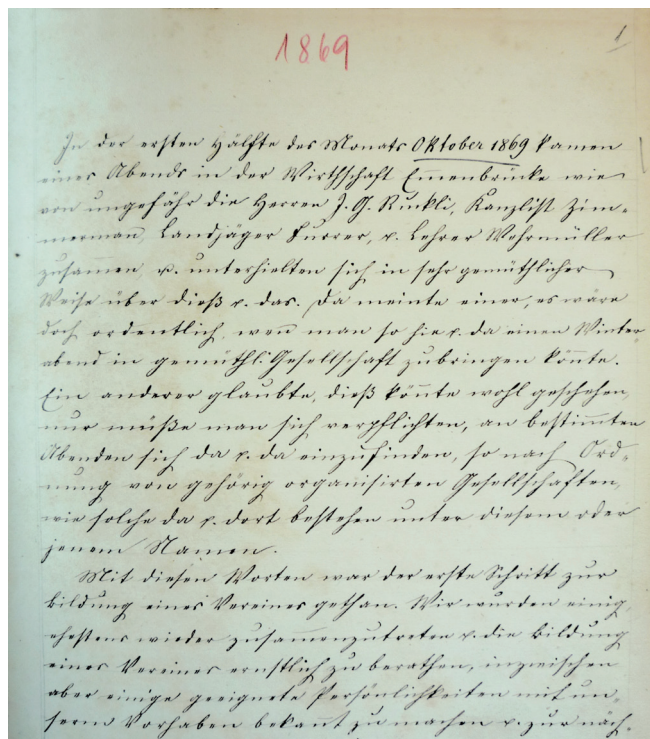 1869
1
In der ersten Hälfte des Monats Oktober 1869 kamen
eines Abends in der Wirthschaft Em̄enbrücke wie
von ungefähr die Herren J. G. Ruckli, Kanzlist Zim-
merman, Landjäger Furrer, u. Lehrer Wehrmüller
zusam̄en, u. unterhielten sich in sehr gemüthlicher
Weise über dieß u. das. Da meinte einer, es wäre
doch ordentlich, wen̄ man so hie u. da einen Winter
abend in gemüthl. Gesellschaft zubringen kön̄te.
Ein anderer glaubte, dieß kön̄te wohl geschehen,
nur müße man sich verpflichten, an bestim̄ten
Abenden sich da u. da einzufinden, so nach Ord-
nung von gehörig organisirten Gesellschaften,
wie solche da u. dort bestehen unter diesem oder
jenem Namen.
Mit diesen Worten war der erste Schritt zur
Bildung eines Vereines gethan. Wir wurden einig,
ehestens wieder zusammenzutreten u. die Bildung
eines Vereines ernstlich zu berathen, inzwischen
aber einige geeignete Persönlichkeiten mit un-
serm Vorhaben bekan̄t zu machen u. zur näch-